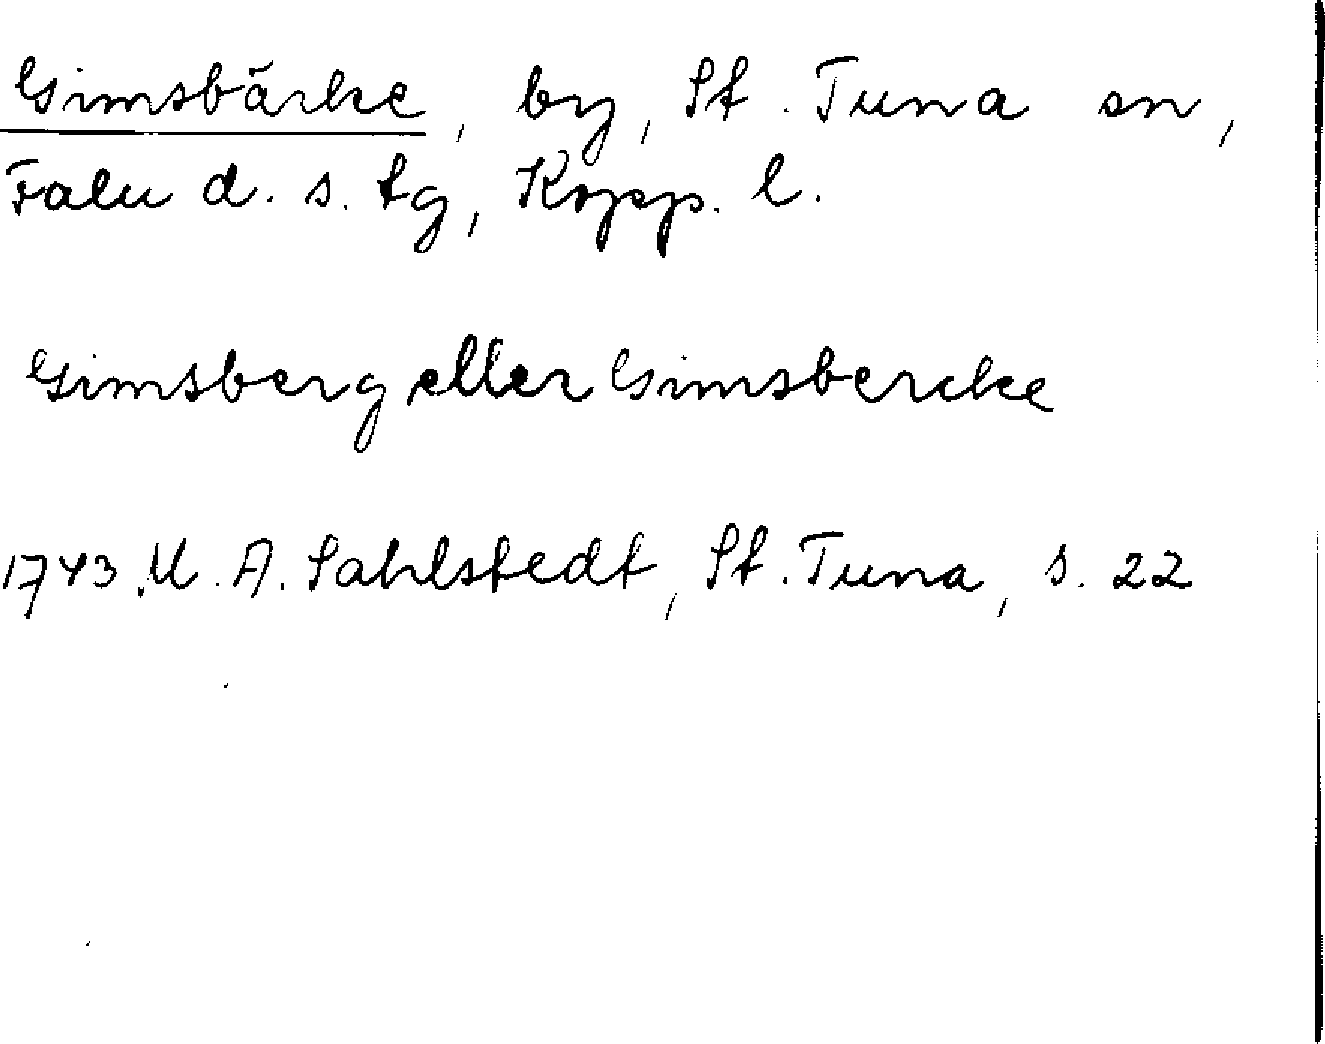 Gimsbärke, by, St. Tuna sn,
Falu d. s. tg, Kopp. l.
Gimsberg eller Gimsbercke
1743. U. A. Sahlstedt, St. Tuna, s. 22